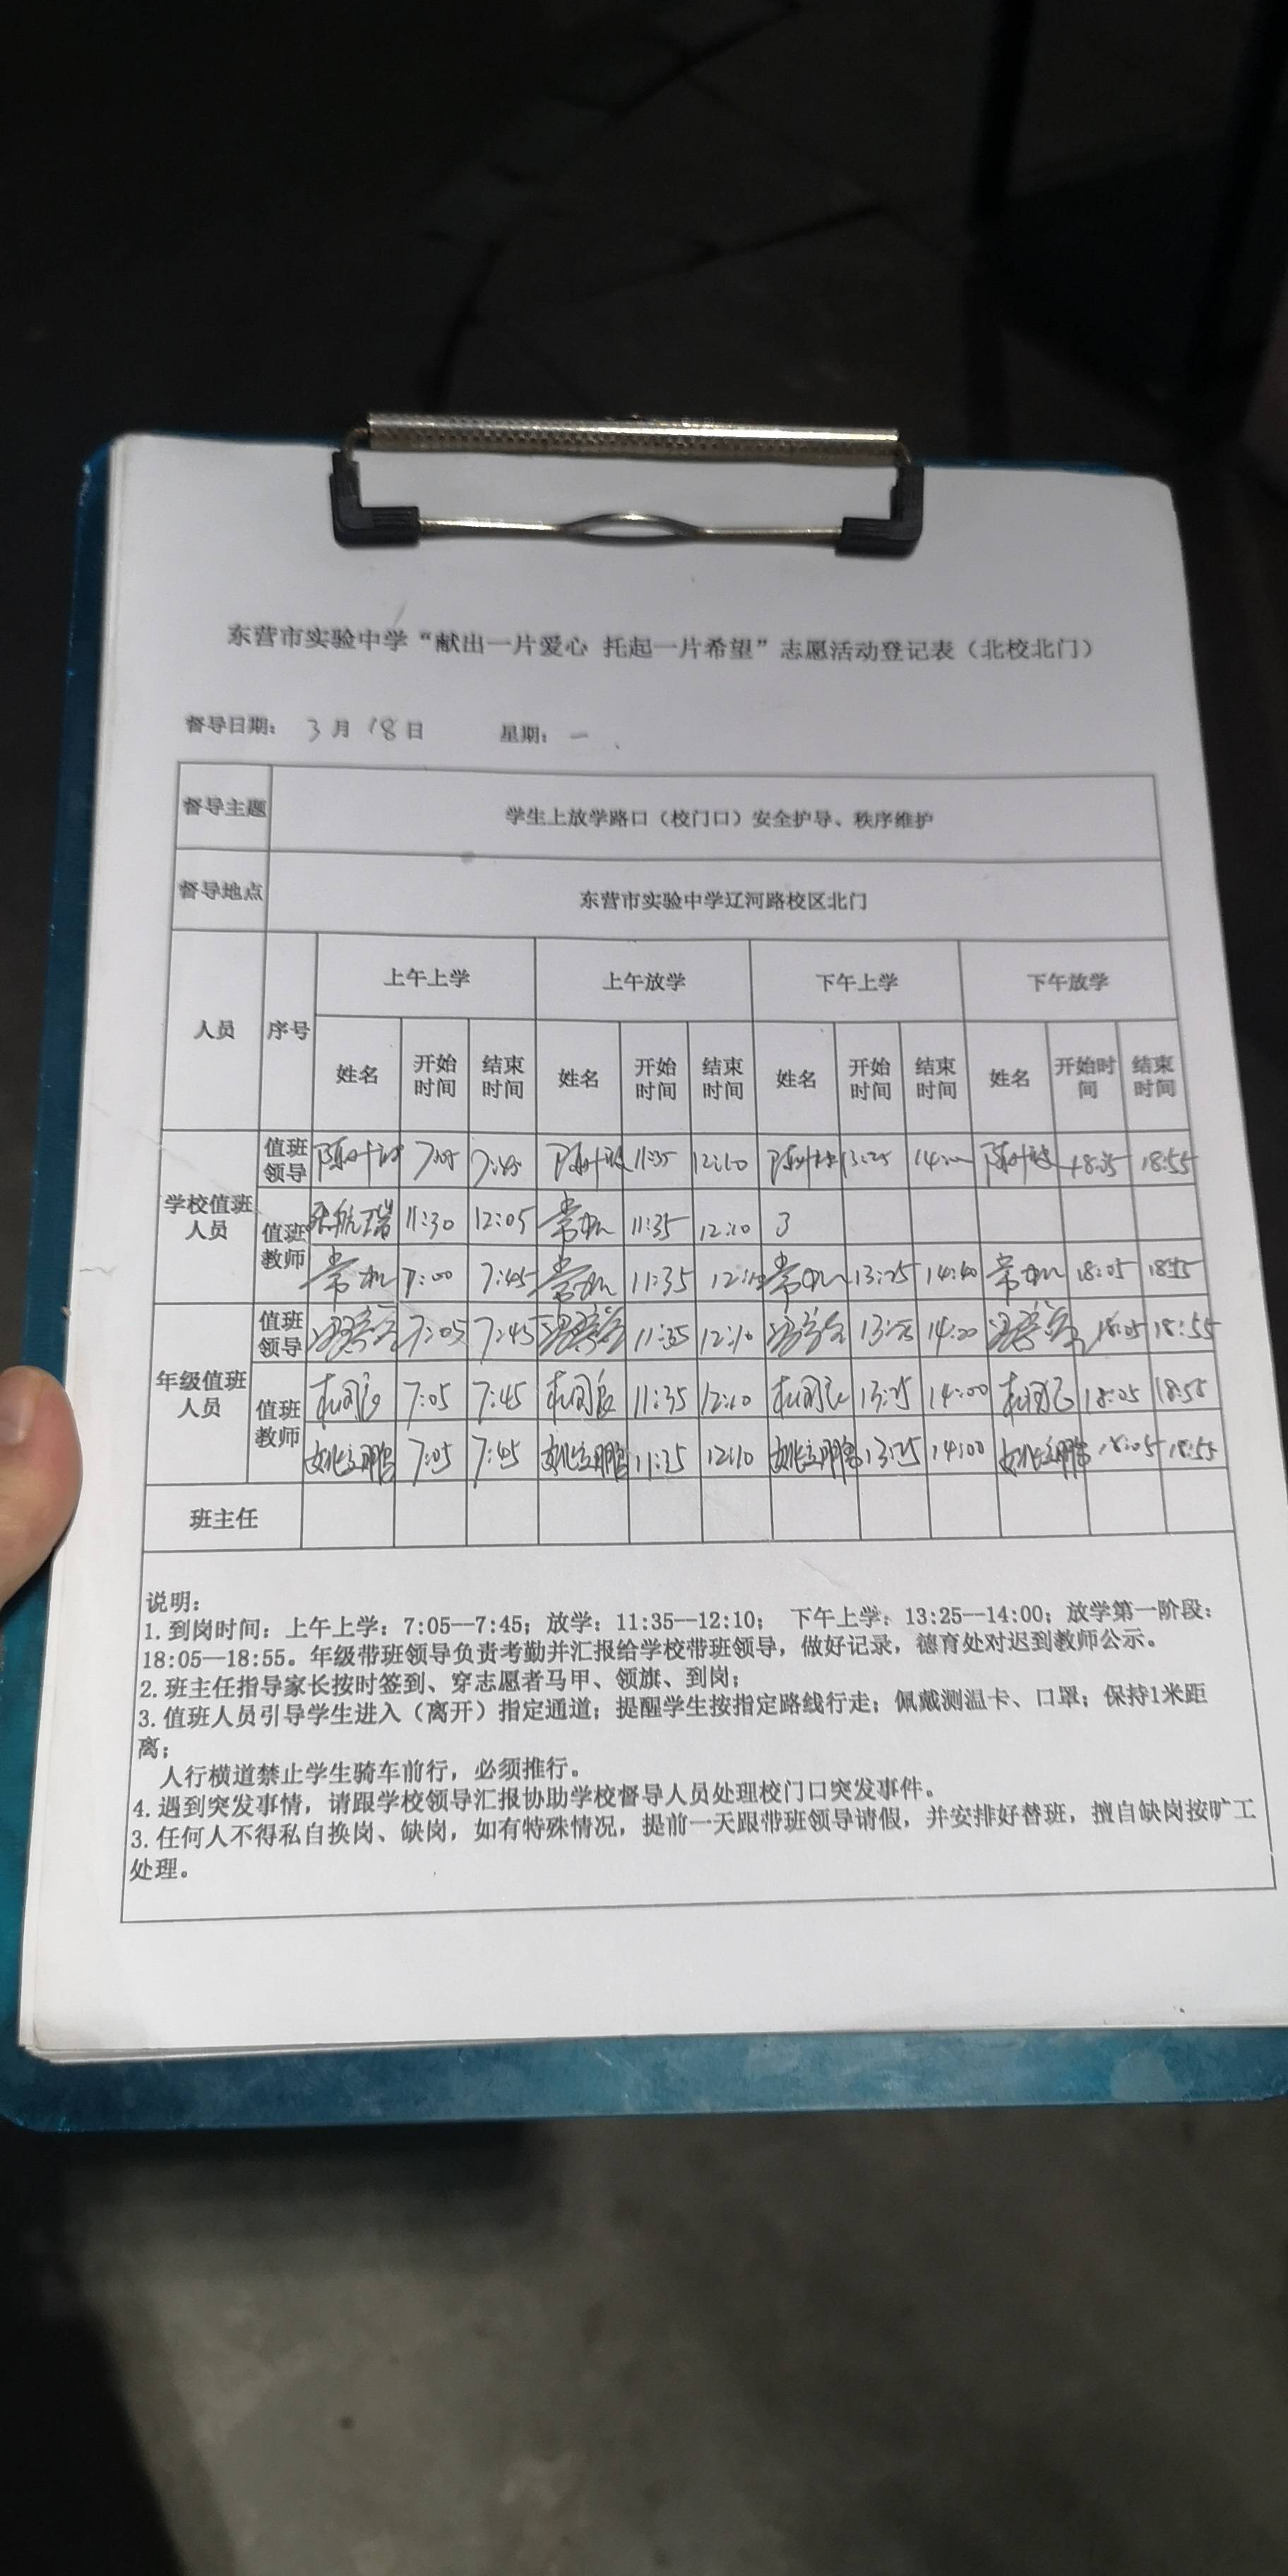 东营市实验中学“献出一片爱心 托起一片希望”志愿活动登记表（北校北门）
督导日期： 3月18日 星期：一
督导主题 学生上放学路口（校门口）安全护导、秩序维护
督导地点 东营市实验中学辽河路校区北门
人员 序号 上午上学 上午放学 下午上学 下午放学
姓名 开始时间 结束时间 姓名 开始时间 结束时间 姓名 开始时间 结束时间 姓名 开始时间 结束时间
学校值班人员
值班领导 7:05 7:45 11:35 12:10 13:25 18:05 18:55
值班教师 11:30 12:05 11:35 12:10
7:00 7:45 11:35 13:25 14:40 18:05 18:55
年级值班人员
值班领导 7:05 7:45 11:35 12:10 14:00 18:05 18:55
值班教师 7:05 7:45 11:35 12:10 13:25 14:00 18:05 18:55
姚立鹏 7:05 7:45 姚立鹏 11:35 12:10 姚立鹏 13:25 14:00 姚立鹏 18:05 18:55
班主任
说明：
1. 到岗时间：上午上学：7:05--7:45；放学：11:35--12:10； 下午上学：13:25--14:00；放学第一阶段：
18:05--18:55。年级带班领导负责考勤并汇报给学校带班领导，做好记录，德育处对迟到教师公示。
2. 班主任指导家长按时签到、穿志愿者马甲、领旗、到岗；
3. 值班人员引导学生进入（离开）指定通道；提醒学生按指定路线行走；佩戴测温卡、口罩；保持1米距
离；
人行横道禁止学生骑车前行，必须推行。
4. 遇到突发事情，请跟学校领导汇报协助学校督导人员处理校门口突发事件。
3. 任何人不得私自换岗、缺岗，如有特殊情况，提前一天跟带班领导请假，并安排好替班，擅自缺岗按旷工
处理。